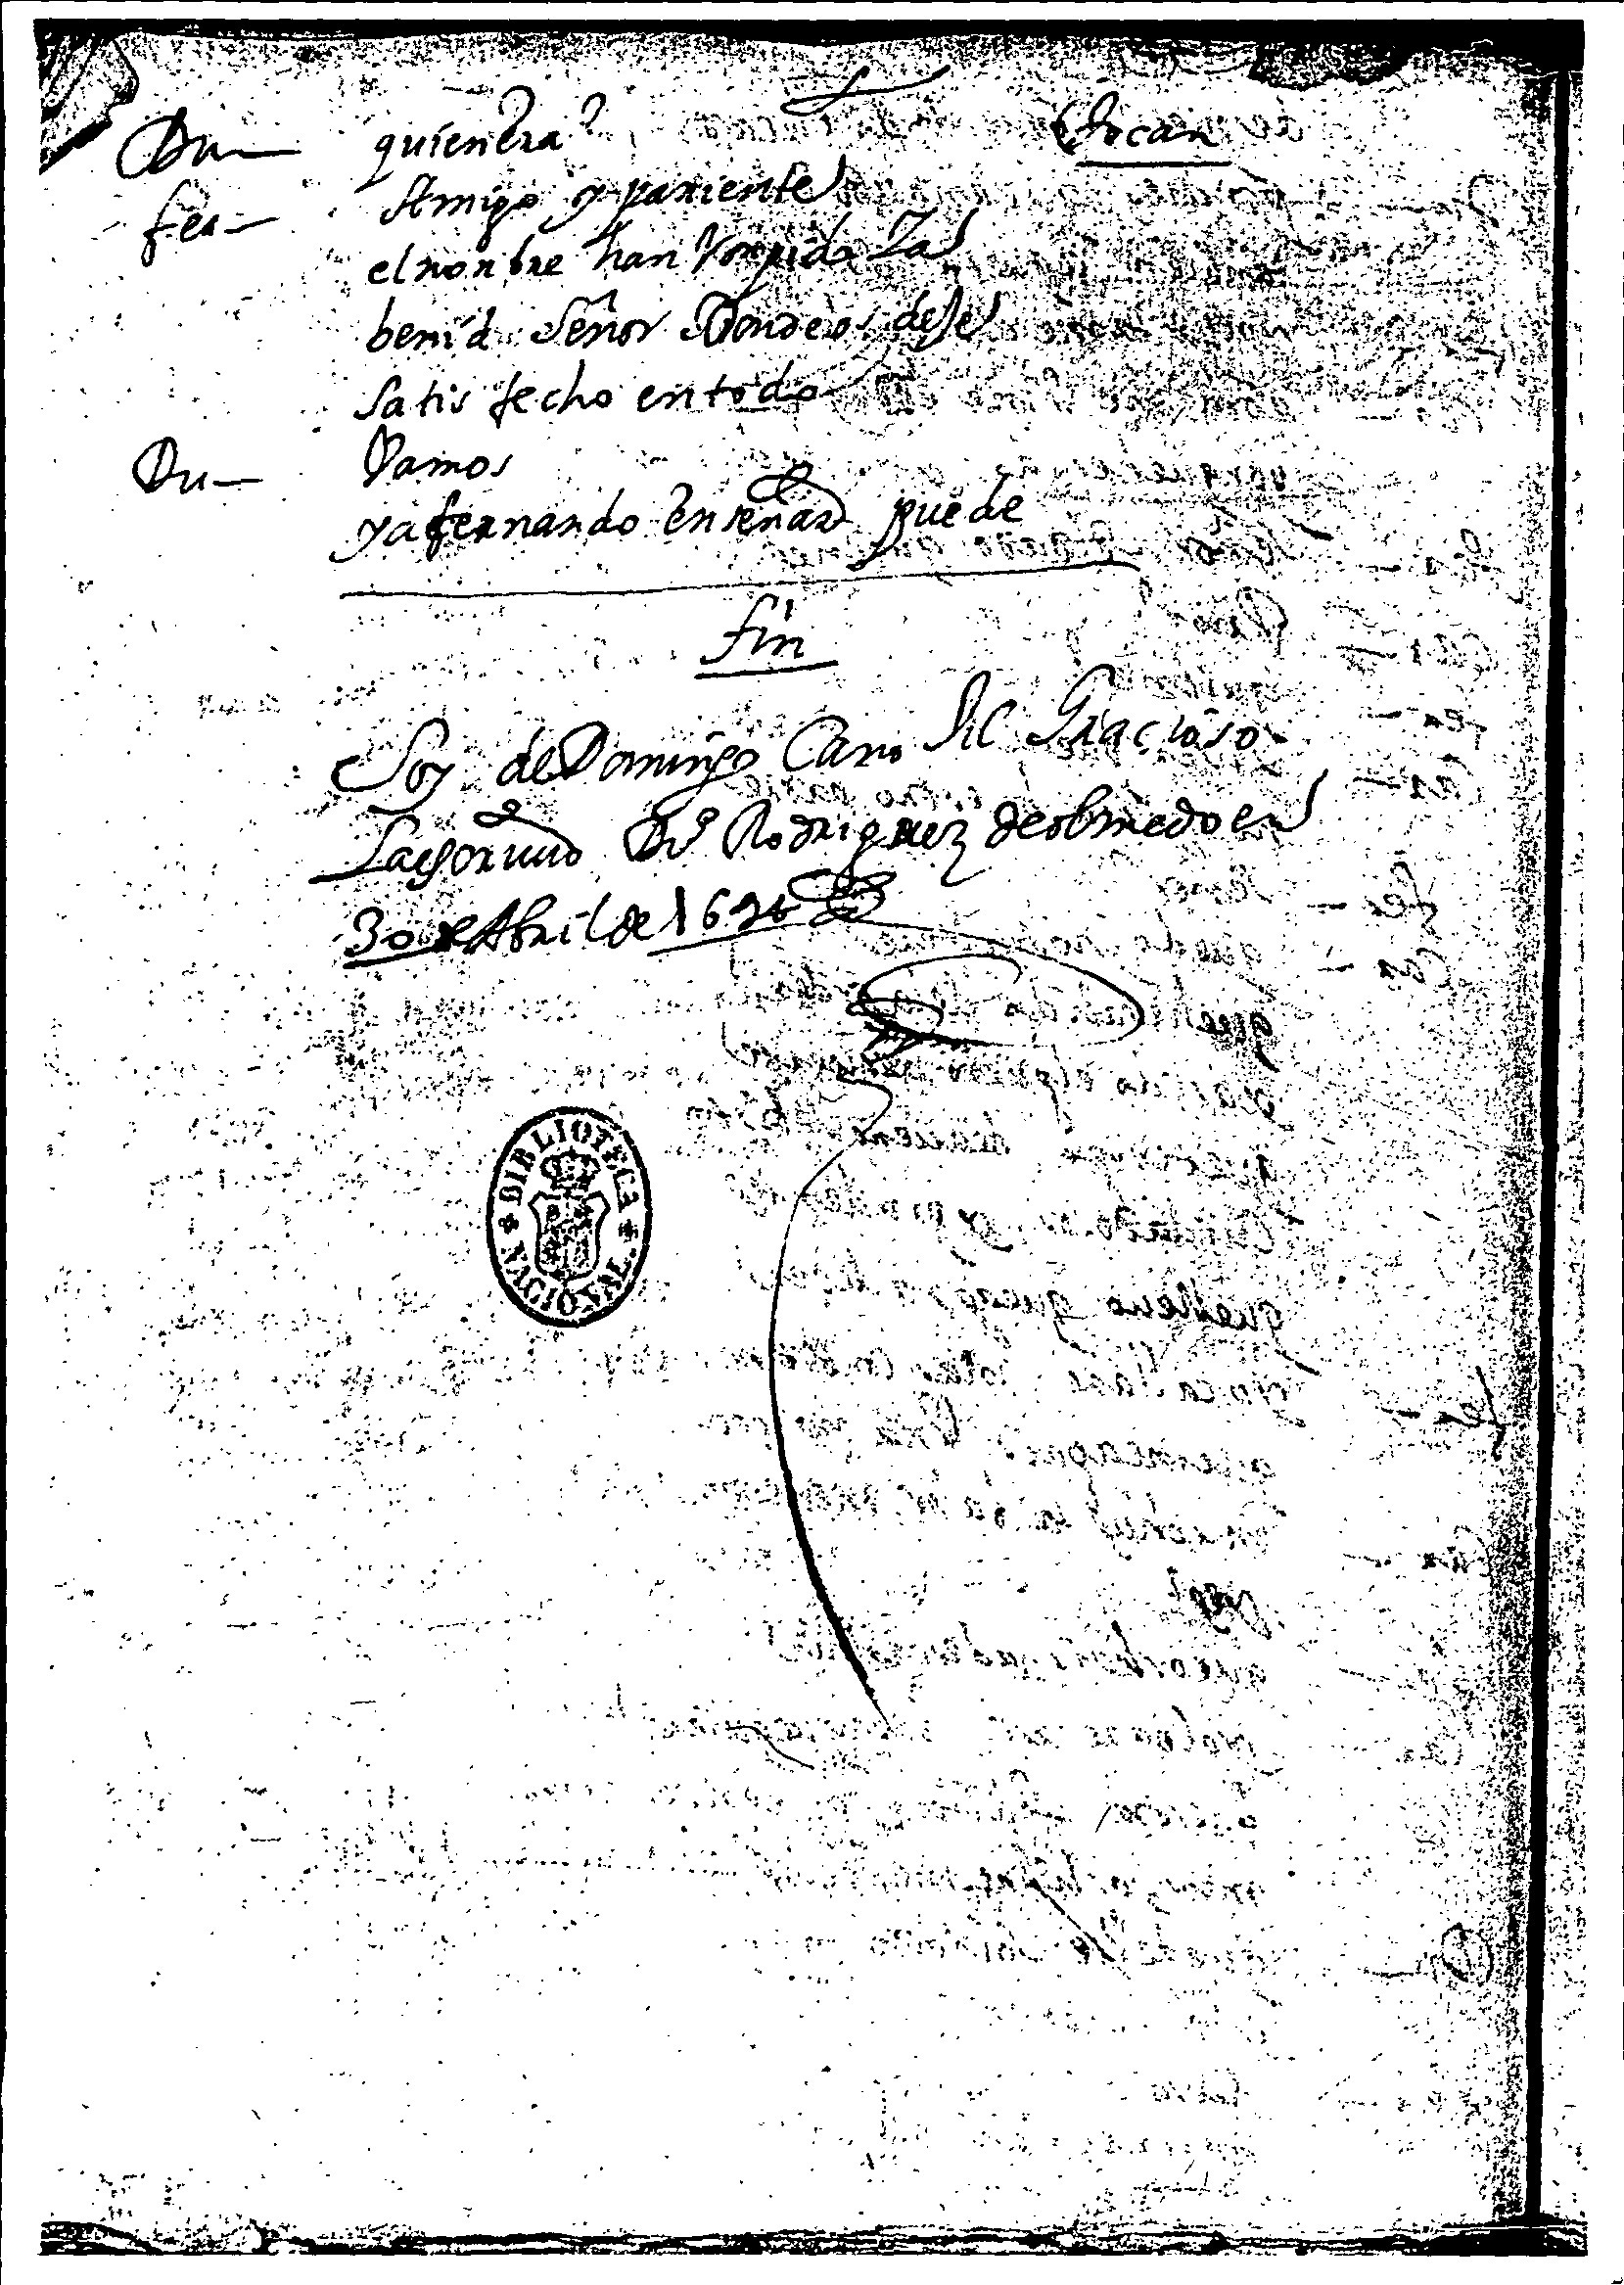 Du— quien era? tocan
fer— Amigo y pariente
el nonbre han rompido Za
benid Señor Donde os deje
satisfecho en todo
Du— Vamos
y a fernando ensenar puede
fin
Soy de Domingo Cano el Graçioso
Rodriguez de olmedo en
30 de Abril de 1626
BIBLIOTECA NACIONAL